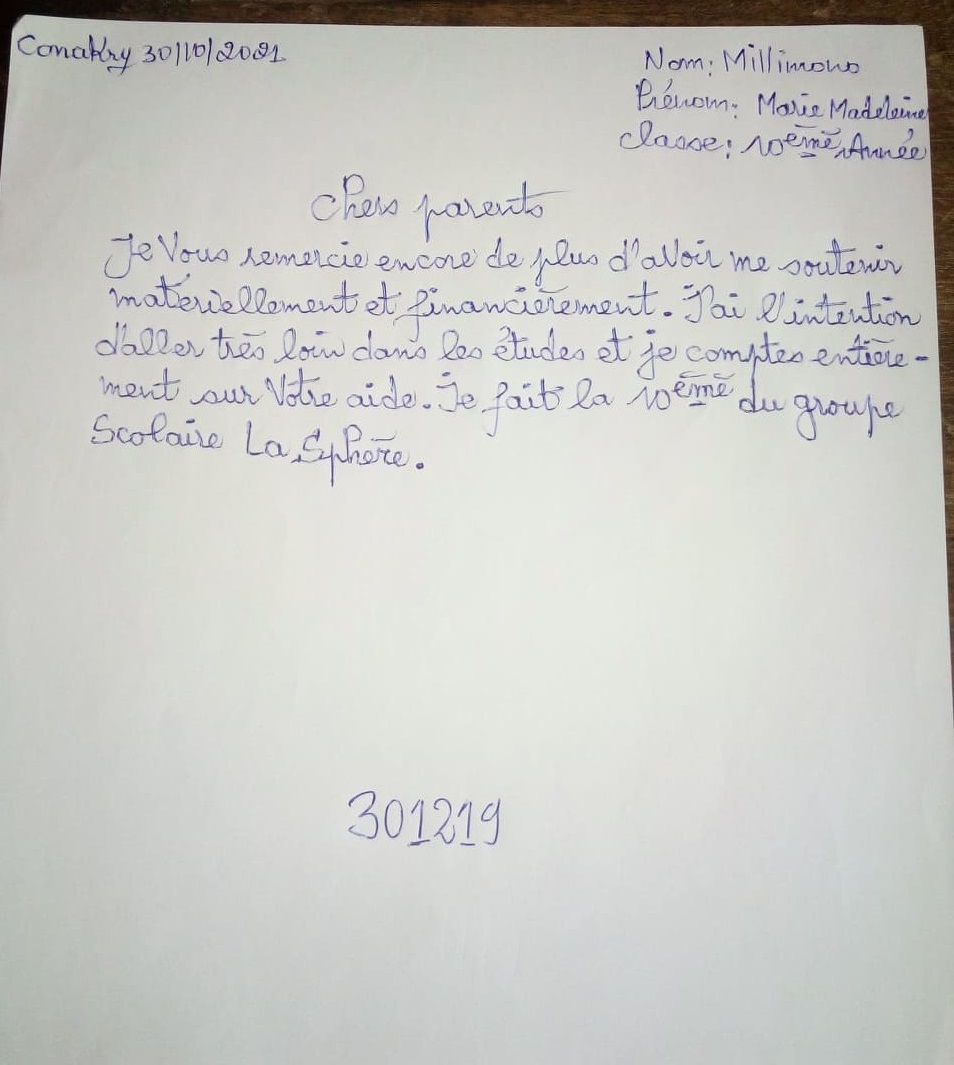 Conakry 30/10/2021
Nom: Millimono
Prénom: Marie Madeleine
Classe: 10ème Année
Chers parents
Je Vous remercie encore de plus d'avoir me soutenir
matériellement et financièrement. J'ai l'intention
d'aller très loin dans les études et je comptes entière-
ment sur Votre aide. Je fait la 10ème du groupe
Scolaire La Sphère.
301219